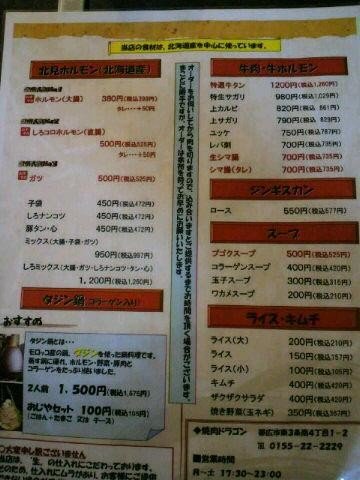 当店の食材は、北海道産を中心に使っています。
北見ホルモン(北海道産)
ホルモン(大腸) 380円(税込399円)
タレ…+50円
しろコロホルモン(直腸)
500円(税込525円)
タレ…+50円
ガツ 500円(税込525円)
子袋 450円(税込472円)
しろナンコツ 450円(税込472円)
豚タン・心 450円(税込472円)
ミックス(大腸・子袋・ガツ)
950円(税込997円)
しろミックス(大腸・ガツ・しろナンコツ・タン・心)
1,200円(税込1,260円)
タジン鍋(コラーゲン入り)
おすすめ
タジン鍋とは…
モロッコ産の鍋、タジンを使った鍋料理です。
蒸す鍋に優れ、ホルモン・野菜・豚肉と
コラーゲンをたっぷり使いました。
2人前 1,500円(税込1,575円)
おじやセット 100円(税込105円)
(ごはん+たまご 又は チーズ)
大変申し訳ございません
当店は、「生」の仕入れにこだわっております。
オーダーをお伺いしてから肉を切りますので、込み合いますとご提供するまでお時間を頂く場合がございます。
まことに勝手ですが、オーダーは余裕を持ってお早めにお願いいたします。
牛肉・牛ホルモン
特選牛タン 1200円(税込1,260円)
特生サガリ 980円(税込1,029円)
上カルビ 820円(税込 861円)
上サガリ 790円(税込 829円)
ユッケ 750円(税込787円)
レバ刺 700円(税込735円)
生シマ腸 700円(税込735円)
シマ腸(タレ) 700円(税込735円)
ジンギスカン
ロース 550円(税込577円)
スープ
プゴクスープ 500円(税込525円)
コラーゲンスープ 400円(税込420円)
玉子スープ 300円(税込315円)
ワカメスープ 200円(税込210円)
ライス・キムチ
ライス(大) 200円(税込210円)
ライス 150円(税込157円)
ライス(小) 100円(税込105円)
キムチ 400円(税込420円)
ザクザクサラダ 400円(税込420円)
焼き野菜(玉ネギ) 350円(税込367円)
焼肉ドラゴン 帯広市東3条南4丁目1-2
0155-22-2229
営業時間
月~土 17:30~23:00